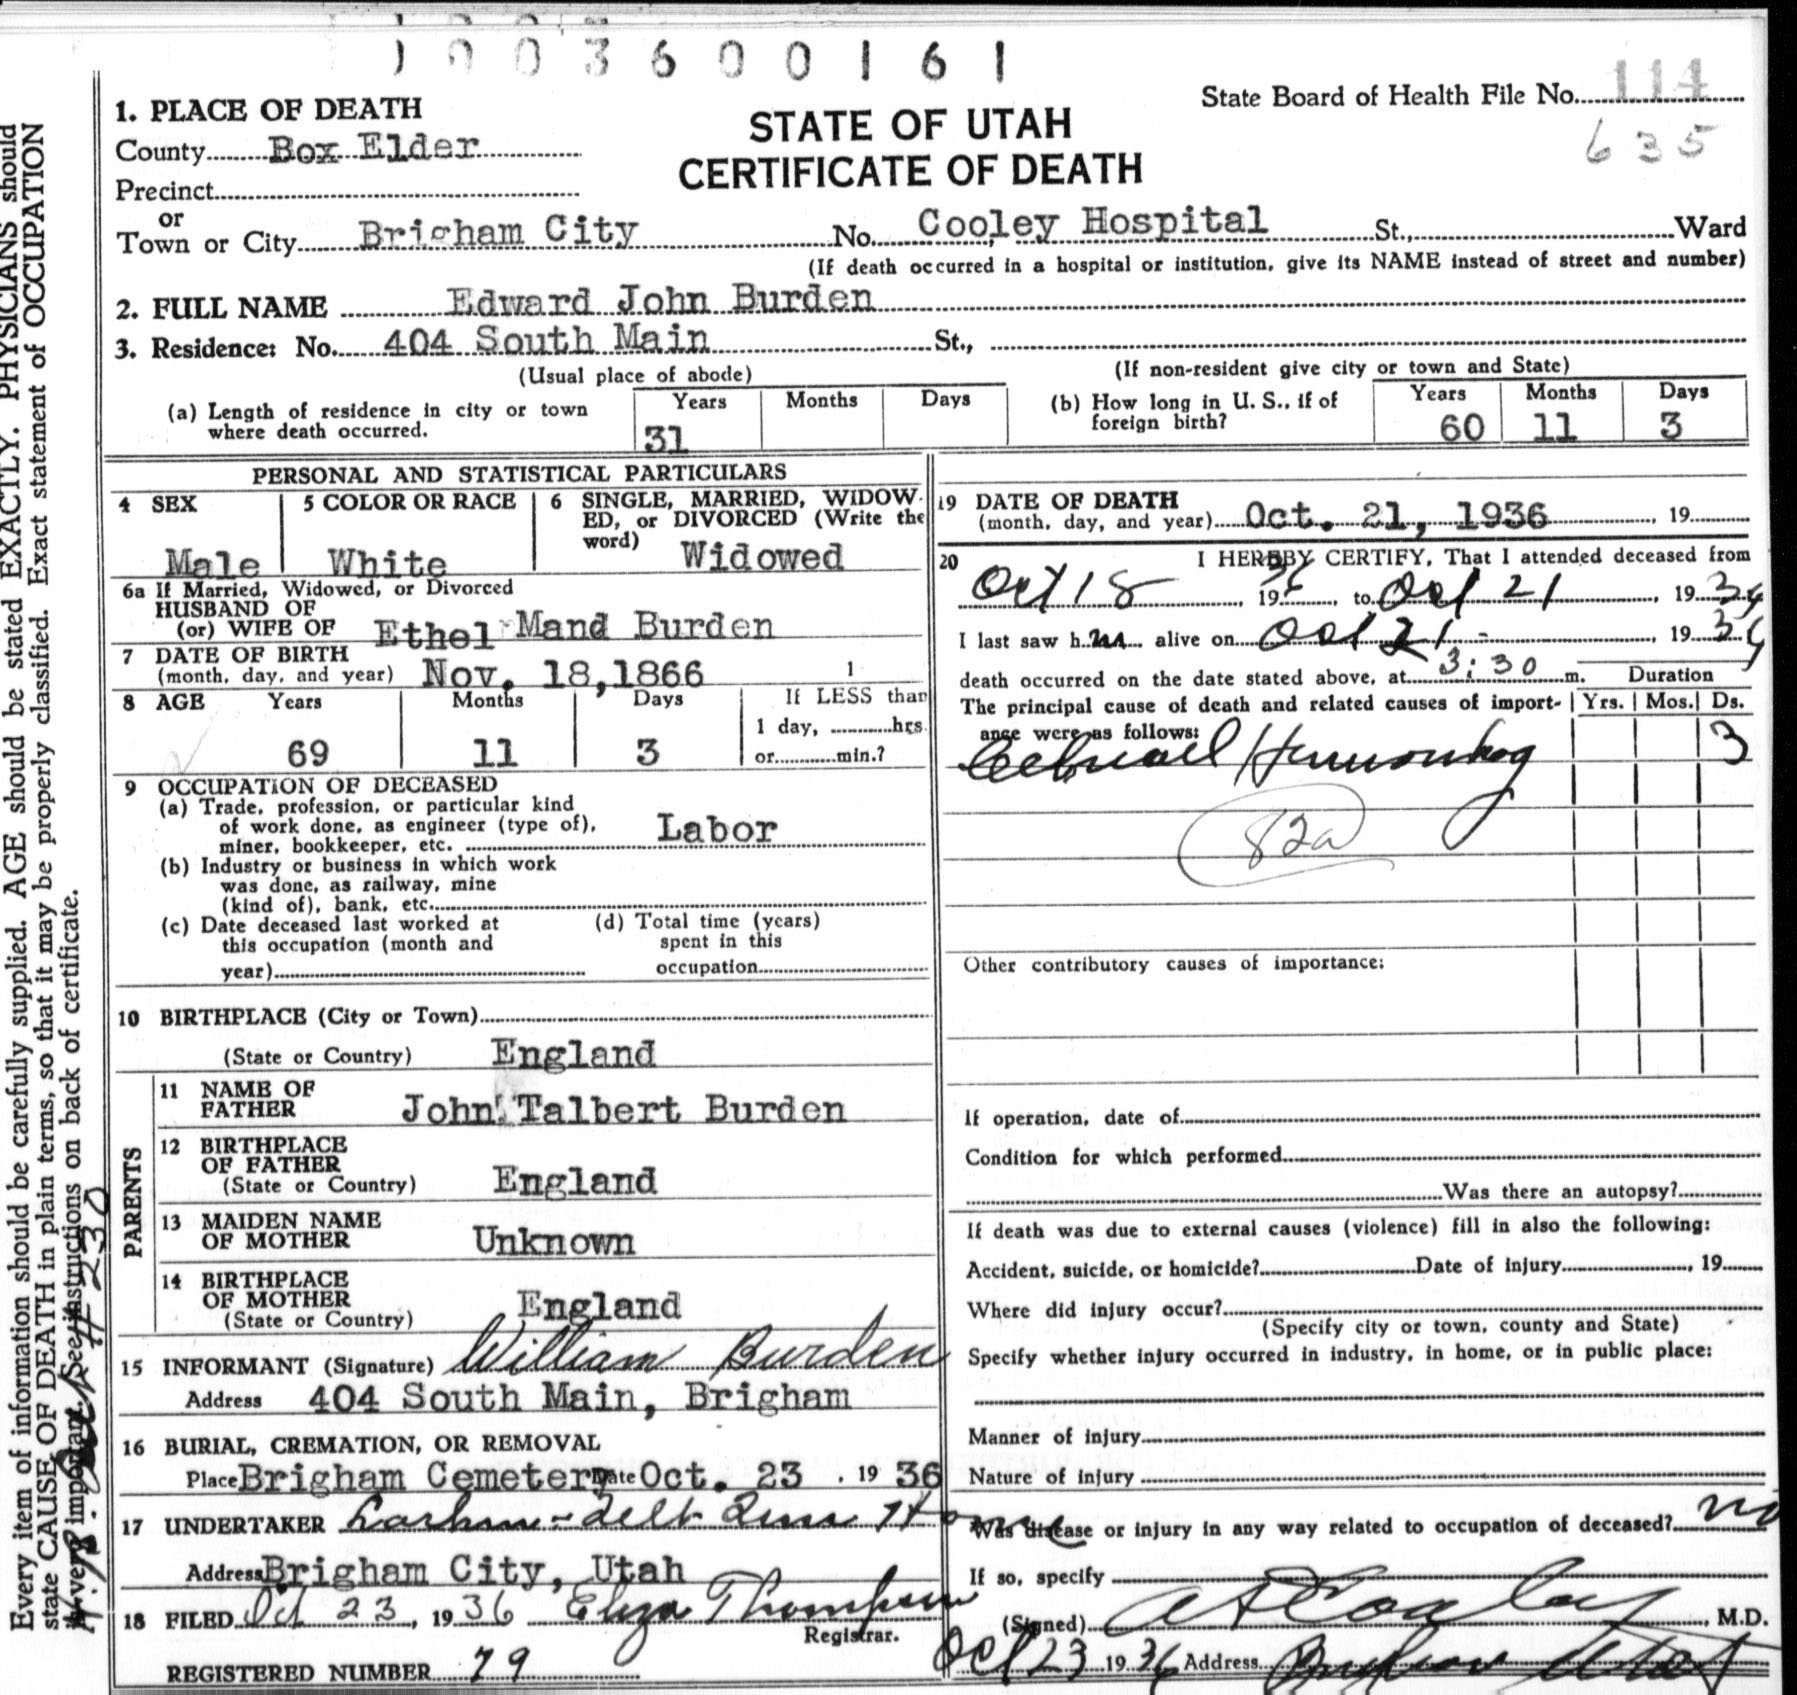 1003600161
State Board of Health File No. 114
635
STATE OF UTAH
CERTIFICATE OF DEATH
1. PLACE OF DEATH
County Box Elder
Precinct
or
Town or City Brigham City No. Cooley Hospital St., Ward
(If death occurred in a hospital or institution, give its NAME instead of street and number)
2. FULL NAME Edward John Burden
3. Residence: No. 404 South Main St.,
(Usual place of abode) (If non-resident give city or town and State)
(a) Length of residence in city or town where death occurred. Years 31 Months Days
(b) How long in U. S., if of foreign birth? Years 60 Months 11 Days 3
PERSONAL AND STATISTICAL PARTICULARS
4 SEX Male
5 COLOR OR RACE White
6 SINGLE, MARRIED, WIDOWED, or DIVORCED (Write the word) Widowed
6a If Married, Widowed, or Divorced
HUSBAND OF
(or) WIFE OF Ethel Mand Burden
7 DATE OF BIRTH
(month, day, and year) Nov. 18,1866 1
8 AGE Years 69 Months 11 Days 3 If LESS than
1 day, hrs.
or min.?
9 OCCUPATION OF DECEASED
(a) Trade, profession, or particular kind
of work done, as engineer (type of),
miner, bookkeeper, etc. Labor
(b) Industry or business in which work
was done, as railway, mine
(kind of), bank, etc.
(c) Date deceased last worked at
this occupation (month and
year)
(d) Total time (years)
spent in this
occupation
10 BIRTHPLACE (City or Town)
(State or Country) England
PARENTS
11 NAME OF
FATHER John Talbert Burden
12 BIRTHPLACE
OF FATHER
(State or Country) England
13 MAIDEN NAME
OF MOTHER Unknown
14 BIRTHPLACE
OF MOTHER
(State or Country) England
15 INFORMANT (Signature) William Burden
Address 404 South Main, Brigham
16 BURIAL, CREMATION, OR REMOVAL
Place Brigham Cemetery Date Oct. 23 , 19 36
17 UNDERTAKER Home
Address Brigham City, Utah
18 FILED Oct 23, 1936 Eliza Thompson
Registrar.
REGISTERED NUMBER 79
19 DATE OF DEATH
(month, day, and year) Oct. 21, 1936 , 19
20 I HEREBY CERTIFY, That I attended deceased from
Oct 18, 1936, to Oct 21, 19
I last saw h alive on Oct 21, 19
death occurred on the date stated above, at 3:30 m. Duration
The principal cause of death and related causes of importance were as follows: Yrs. Mos. Ds.
Hemorrhag 3
82a
Other contributory causes of importance:
If operation, date of
Condition for which performed
Was there an autopsy?
If death was due to external causes (violence) fill in also the following:
Accident, suicide, or homicide? Date of injury , 19
Where did injury occur?
(Specify city or town, county and State)
Specify whether injury occurred in industry, in home, or in public place:
Manner of injury
Nature of injury
Was disease or injury in any way related to occupation of deceased? no
If so, specify
(Signed) Cooley, M.D.
Oct 23 1936 Address
Every item of information should be carefully supplied. AGE should be stated EXACTLY. PHYSICIANS should
state CAUSE OF DEATH in plain terms, so that it may be properly classified. Exact statement of OCCUPATION
is very important. See instructions on back of certificate.
#230